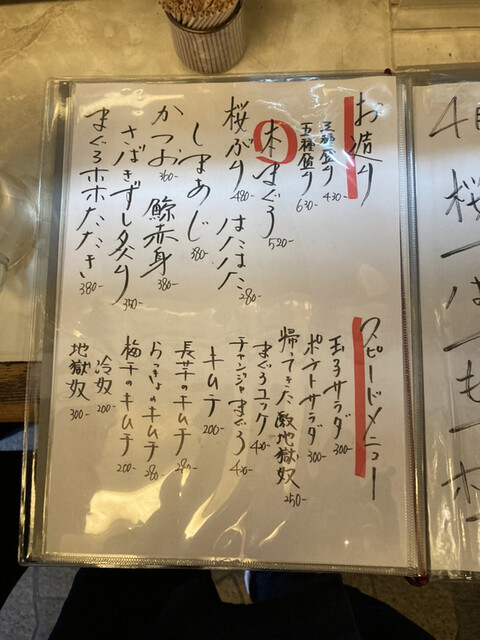 お造り
三種盛り 430-
五種盛り 630-
本まぐろ 520-
桜ぶり 480-
はたはた 280-
しまあじ 380-
かつお 360-
鯨赤身 380-
さばきずし炙り 350-
まぐろホホたたき 380-
スピードメニュー
玉子サラダ 300-
ポテトサラダ 300-
帰ってきた酸地獄奴 250-
まぐろユッケ 420-
チャンジャまぐろ 420-
キムチ 200-
長芋のキムチ 280-
らっきょのキムチ 280
梅干のキムチ 200-
冷奴 200-
地獄奴 300-
4月
桜